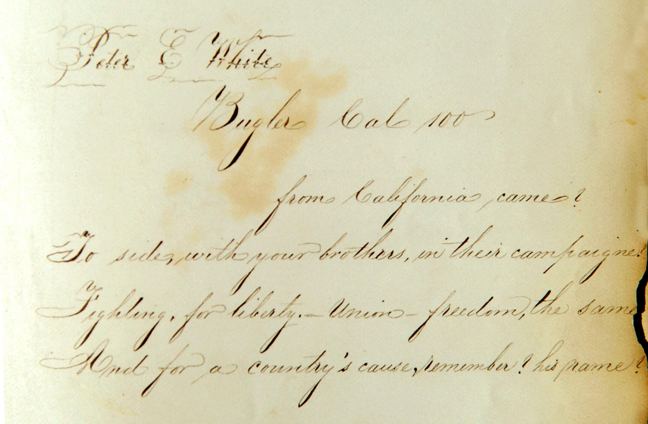 Peter E White
Bugler Cal 100
from California came?
To side, with your brothers, in their campaigne!
Fighting, for liberty.— Union — freedom, the same
And for a country's cause, remember? his name?